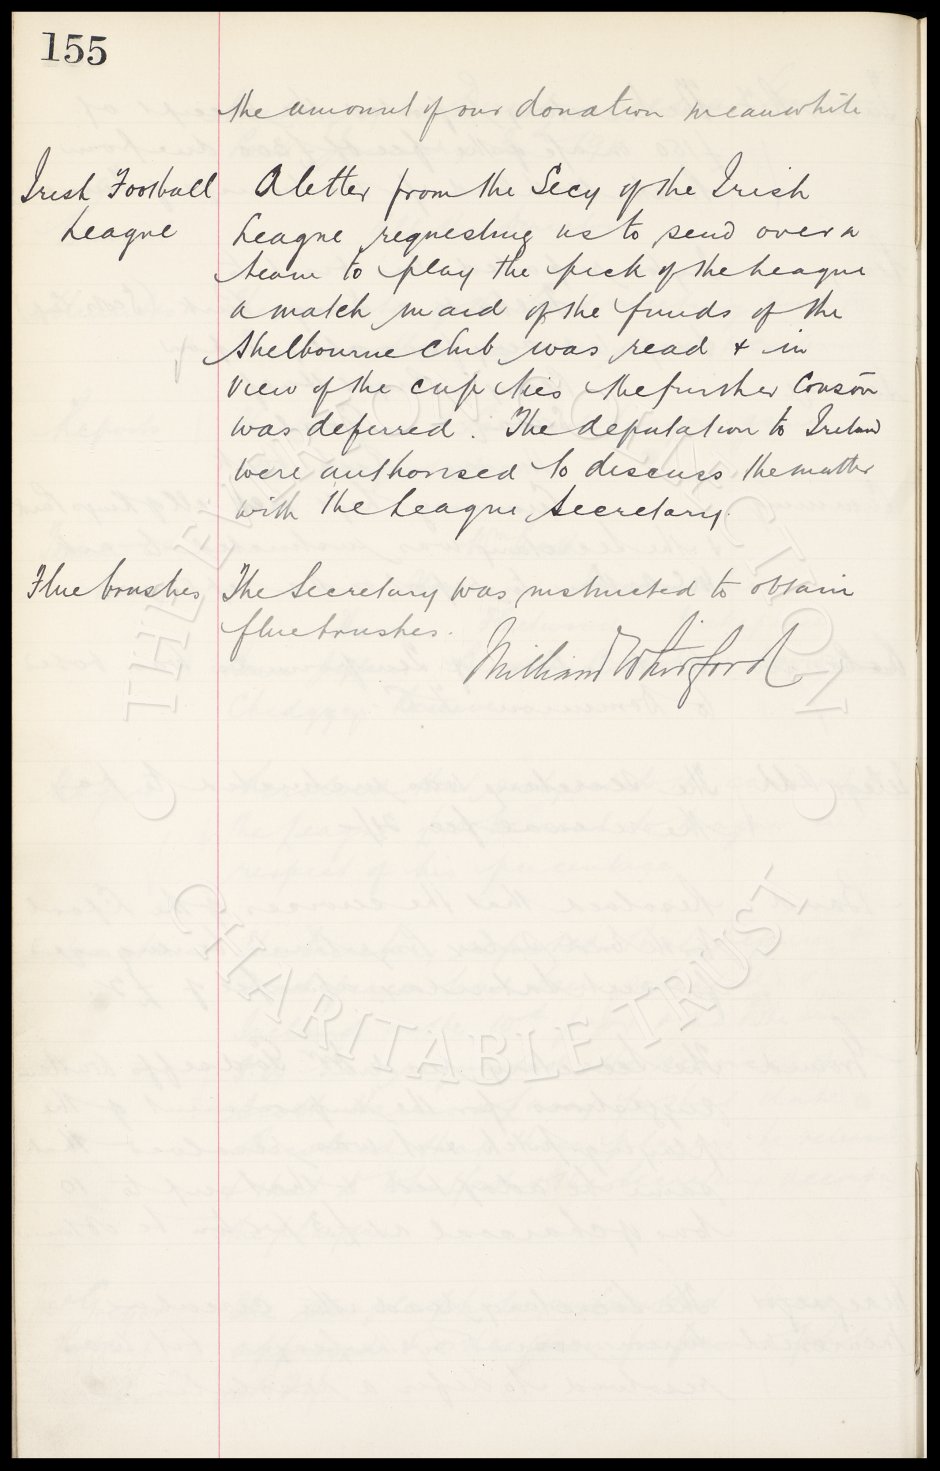 155
the amount of our donation meanwhile
Irish Football
League
A letter from the Secy of the Irish
League requesting us to send over a
team to play the pick of the League
a match in aid of the funds of the
Shelbourne Club was read & in
view of the cup ties the further Conson
was deferred. The deputation to Ireland
were authorised to discuss the matter
with the League Secretary.
Flue brushes
The Secretary was instructed to obtain
flue brushes.
William Whitford
THE EVERTON COLLECTION
CHARITABLE TRUST